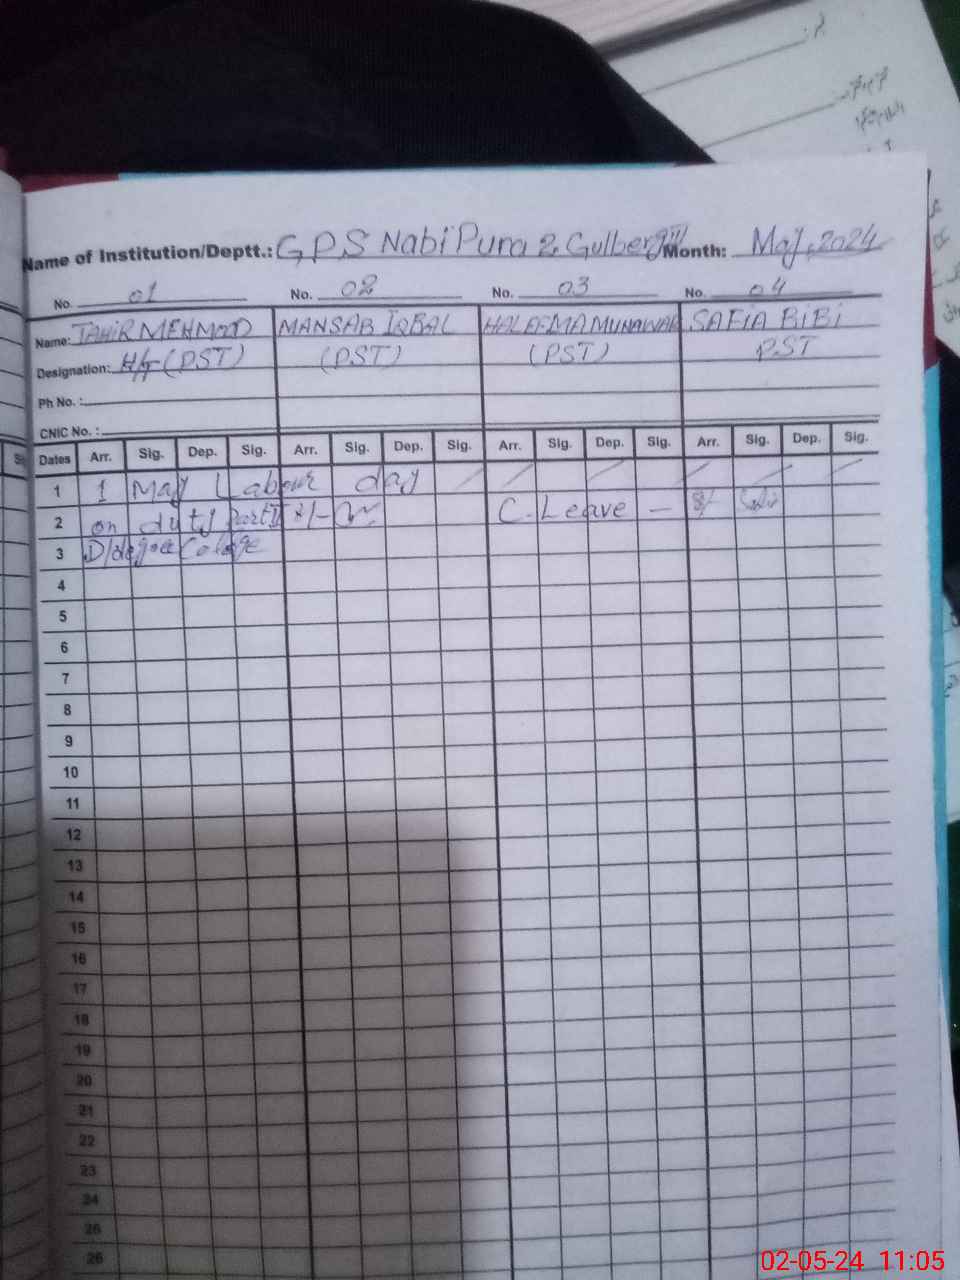 Name of Institution/Deptt.: G.P.S Nabi Pura 2 Gulberg III Month: May, 2024
No. 01 No. 02 No. 03 No. 04
Name: TAHIR MEHMOOD MANSAB IQBAL HALEEMA MUNAWAR SAFIA BIBI
Designation: H/T (PST) (PST) (PST) PST
Ph No. :
CNIC No. :
Dates Arr. Sig. Dep. Sig. Arr. Sig. Dep. Sig. Arr. Sig. Dep. Sig. Arr. Sig. Dep. Sig.
1 1 May Labour day
2 on duty Part II 8/- C. Leave - 8/-
3
4
5
6
7
8
9
10
11
12
13
14
15
16
17
18
19
20
21
22
23
24
25
26
02-05-24 11:05